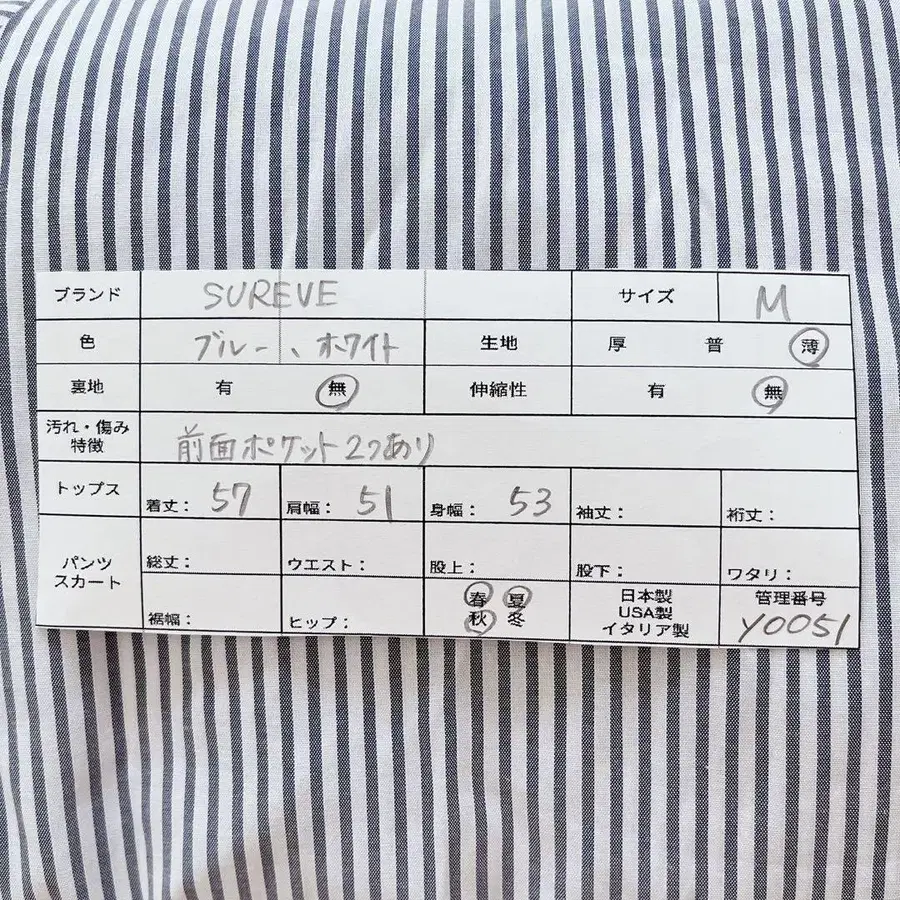 ブランド SUREVE サイズ M
色 ブルー、ホワイト 生地 厚 普 薄
裏地 有 無 伸縮性 有 無
汚れ・傷み
特徴 前面ポケット2つあり
トップス 着丈：57 肩幅：51 身幅：53 袖丈： 裄丈：
パンツ
スカート 総丈： ウエスト： 股上： 股下： ワタリ：
裾幅： ヒップ： 春 夏
秋 冬
日本製
USA製
イタリア製
管理番号
Y0051